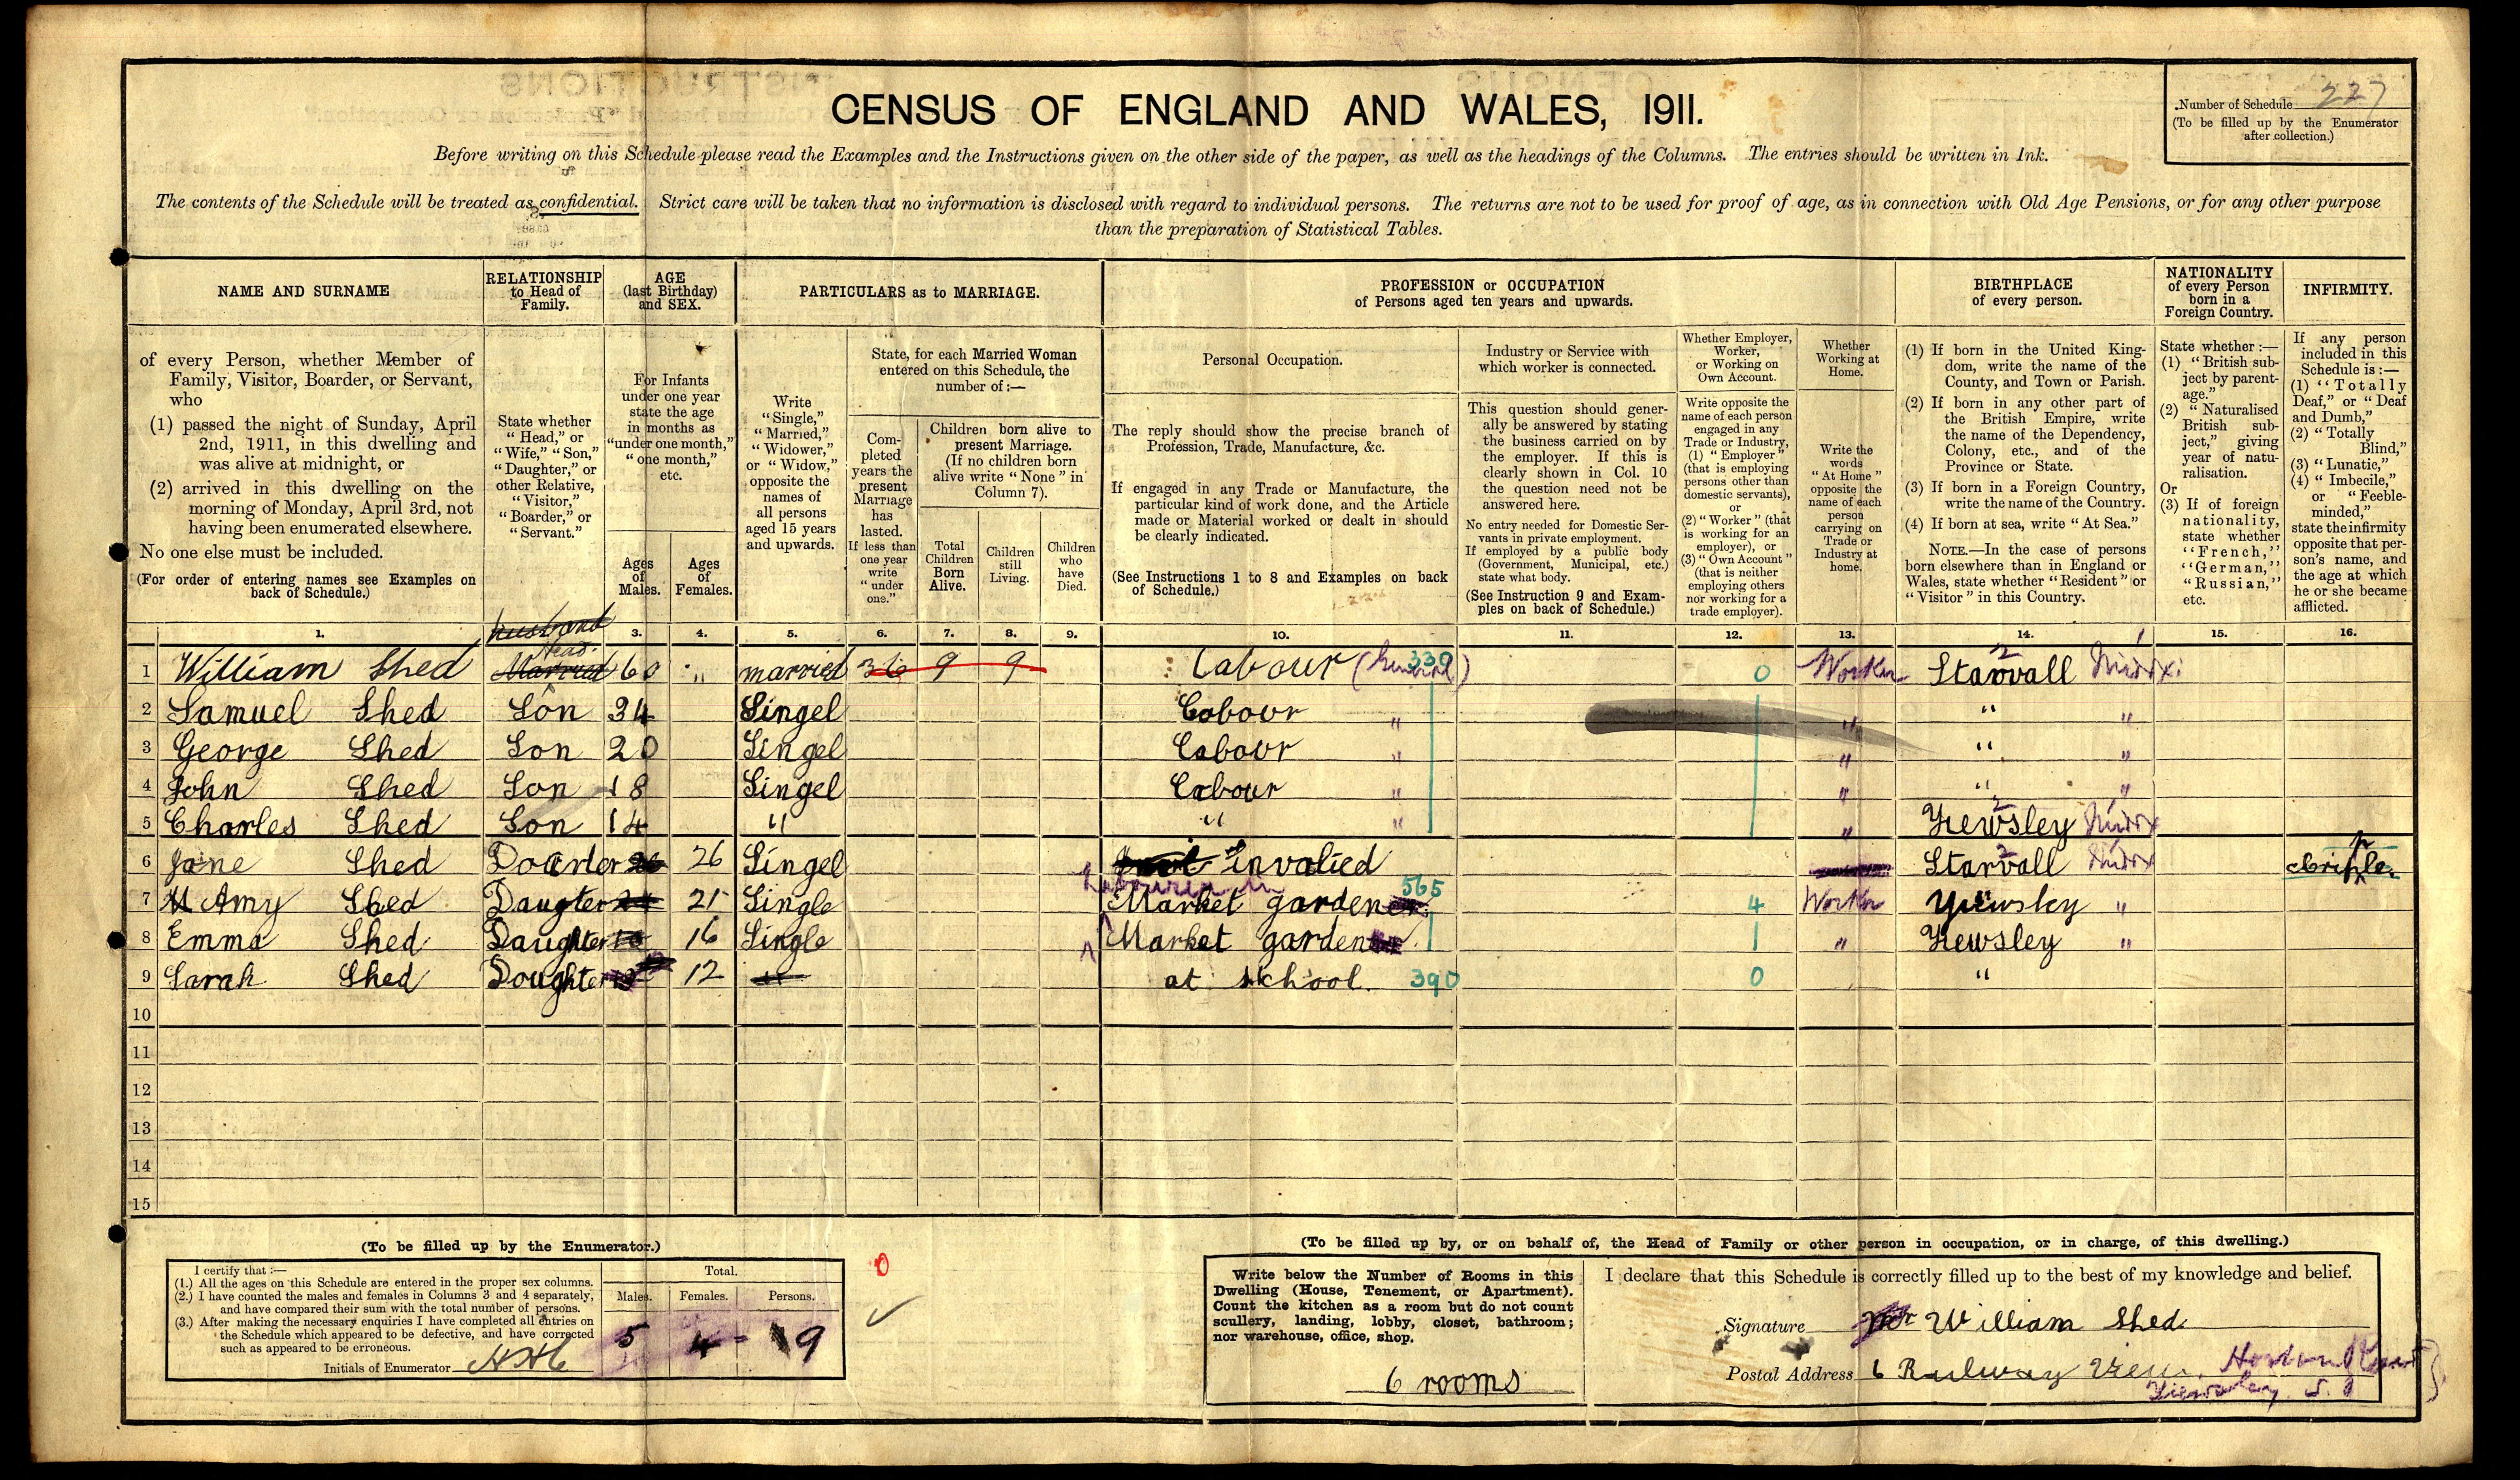 CENSUS OF ENGLAND AND WALES, 1911.
Number of Schedule 227
(To be filled up by the Enumerator
after collection.)
Before writing on this Schedule please read the Examples and the Instructions given on the other side of the paper, as well as the headings of the Columns. The entries should be written in Ink.
The contents of the Schedule will be treated as confidential. Strict care will be taken that no information is disclosed with regard to individual persons. The returns are not to be used for proof of age, as in connection with Old Age Pensions, or for any other purpose
than the preparation of Statistical Tables.
NAME AND SURNAME
of every Person, whether Member of
Family, Visitor, Boarder, or Servant,
who
(1) passed the night of Sunday, April
2nd, 1911, in this dwelling and
was alive at midnight, or
(2) arrived in this dwelling on the
morning of Monday, April 3rd, not
having been enumerated elsewhere.
No one else must be included.
(For order of entering names see Examples on
back of Schedule.)
RELATIONSHIP
to Head of
Family.
State whether
"Head," or
"Wife," "Son,"
"Daughter," or
other Relative,
"Visitor,"
"Boarder," or
"Servant."
AGE
(last Birthday)
and SEX.
For Infants
under one year
state the age
in months as
"under one month,"
"one month,"
etc.
Ages
of
Males.
Ages
of
Females.
PARTICULARS as to MARRIAGE.
Write
"Single,"
"Married,"
"Widower,"
or "Widow,"
opposite the
names of
all persons
aged 15 years
and upwards.
State, for each Married Woman
entered on this Schedule, the
number of :—
Com-
pleted
years the
present
Marriage
has
lasted.
If less than
one year
write
"under
one."
Children born alive to
present Marriage.
(If no children born
alive write "None" in
Column 7).
Total
Children
Born
Alive.
Children
still
Living.
Children
who
have
Died.
PROFESSION or OCCUPATION
of Persons aged ten years and upwards.
Personal Occupation.
The reply should show the precise branch of
Profession, Trade, Manufacture, &c.
If engaged in any Trade or Manufacture, the
particular kind of work done, and the Article
made or Material worked or dealt in should
be clearly indicated.
(See Instructions 1 to 8 and Examples on back
of Schedule.)
Industry or Service with
which worker is connected.
This question should gener-
ally be answered by stating
the business carried on by
the employer. If this is
clearly shown in Col. 10
the question need not be
answered here.
No entry needed for Domestic Ser-
vants in private employment.
If employed by a public body
(Government, Municipal, etc.)
state what body.
(See Instruction 9 and Exam-
ples on back of Schedule.)
Whether Employer,
Worker,
or Working on
Own Account.
Write opposite the
name of each person
engaged in any
Trade or Industry,
(1) "Employer"
(that is employing
persons other than
domestic servants),
or
(2) "Worker" (that
is working for an
employer), or
(3) "Own Account"
(that is neither
employing others
nor working for a
trade employer).
Whether
Working at
Home.
Write the
words
"At Home"
opposite the
name of each
person
carrying on
Trade or
Industry at
home.
BIRTHPLACE
of every person.
(1) If born in the United King-
dom, write the name of the
County, and Town or Parish.
(2) If born in any other part of
the British Empire, write
the name of the Dependency,
Colony, etc., and of the
Province or State.
(3) If born in a Foreign Country,
write the name of the Country.
(4) If born at sea, write "At Sea."
NOTE.—In the case of persons
born elsewhere than in England or
Wales, state whether "Resident" or
"Visitor" in this Country.
NATIONALITY
of every Person
born in a
Foreign Country.
State whether :—
(1) "British sub-
ject by parent-
age."
(2) "Naturalised
British sub-
ject," giving
year of natu-
ralisation.
Or
(3) If of foreign
nationality,
state whether
"French,"
"German,"
"Russian,"
etc.
INFIRMITY.
If any person
included in this
Schedule is :—
(1) "Totally
Deaf," or "Deaf
and Dumb,"
(2) "Totally
Blind,"
(3) "Lunatic,"
(4) "Imbecile,"
or "Feeble-
minded,"
state the infirmity
opposite that per-
son's name, and
the age at which
he or she became
afflicted.
1. 3. 4. 5. 6. 7. 8. 9. 10. 11. 12. 13. 14. 15. 16.
husband
Head.
1 William Shed Married 60 " married 36 9 9 Labour (General) 330 0 Worker Starvall Middx
2 Samuel Shed Son 34 Singel Labour " " " "
3 George Shed Son 20 Singel Labour " " " "
4 John Shed Son 18 Singel Labour " " " "
5 Charles Shed Son 14 " " " " Yiewsley Middx
6 Jane Shed Doarter 26 26 Singel invalied Starvall Middx Criple
Labourer in
7 Amy Shed Daugter 21 Single Market garden 565 4 Worker Yiewsley "
8 Emma Shed Daughter 16 Single Market garden " Yiewsley "
9 Sarah Shed Doughter 12 at school. 390 0 "
10
11
12
13
14
15
(To be filled up by the Enumerator.)
I certify that :—
(1.) All the ages on this Schedule are entered in the proper sex columns.
(2.) I have counted the males and females in Columns 3 and 4 separately,
and have compared their sum with the total number of persons.
(3.) After making the necessary enquiries I have completed all entries on
the Schedule which appeared to be defective, and have corrected
such as appeared to be erroneous.
Initials of Enumerator
Total.
Males. Females. Persons.
5 4 9
0
(To be filled up by, or on behalf of, the Head of Family or other person in occupation, or in charge, of this dwelling.)
Write below the Number of Rooms in this
Dwelling (House, Tenement, or Apartment).
Count the kitchen as a room but do not count
scullery, landing, lobby, closet, bathroom;
nor warehouse, office, shop.
6 rooms
I declare that this Schedule is correctly filled up to the best of my knowledge and belief.
Signature Mr William Shed
Postal Address 6 Railway View, Horton
Yiewsley